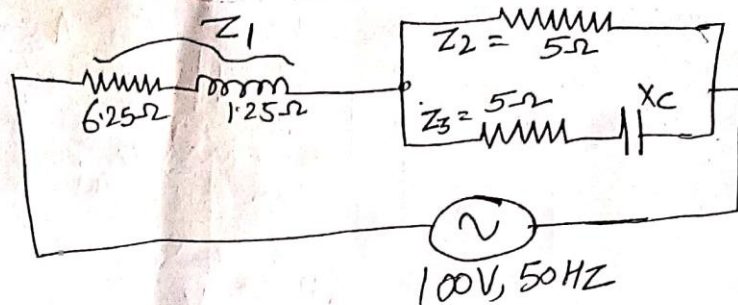 Z1
6.25Ω 1.25Ω
Z2 = 5Ω
Z3 = 5Ω XC
100V, 50HZ